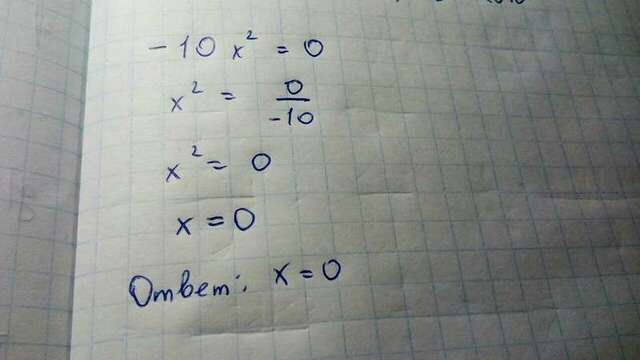 -10 x² = 0
x² = 0/-10
x² = 0
x = 0
Ответ: x = 0